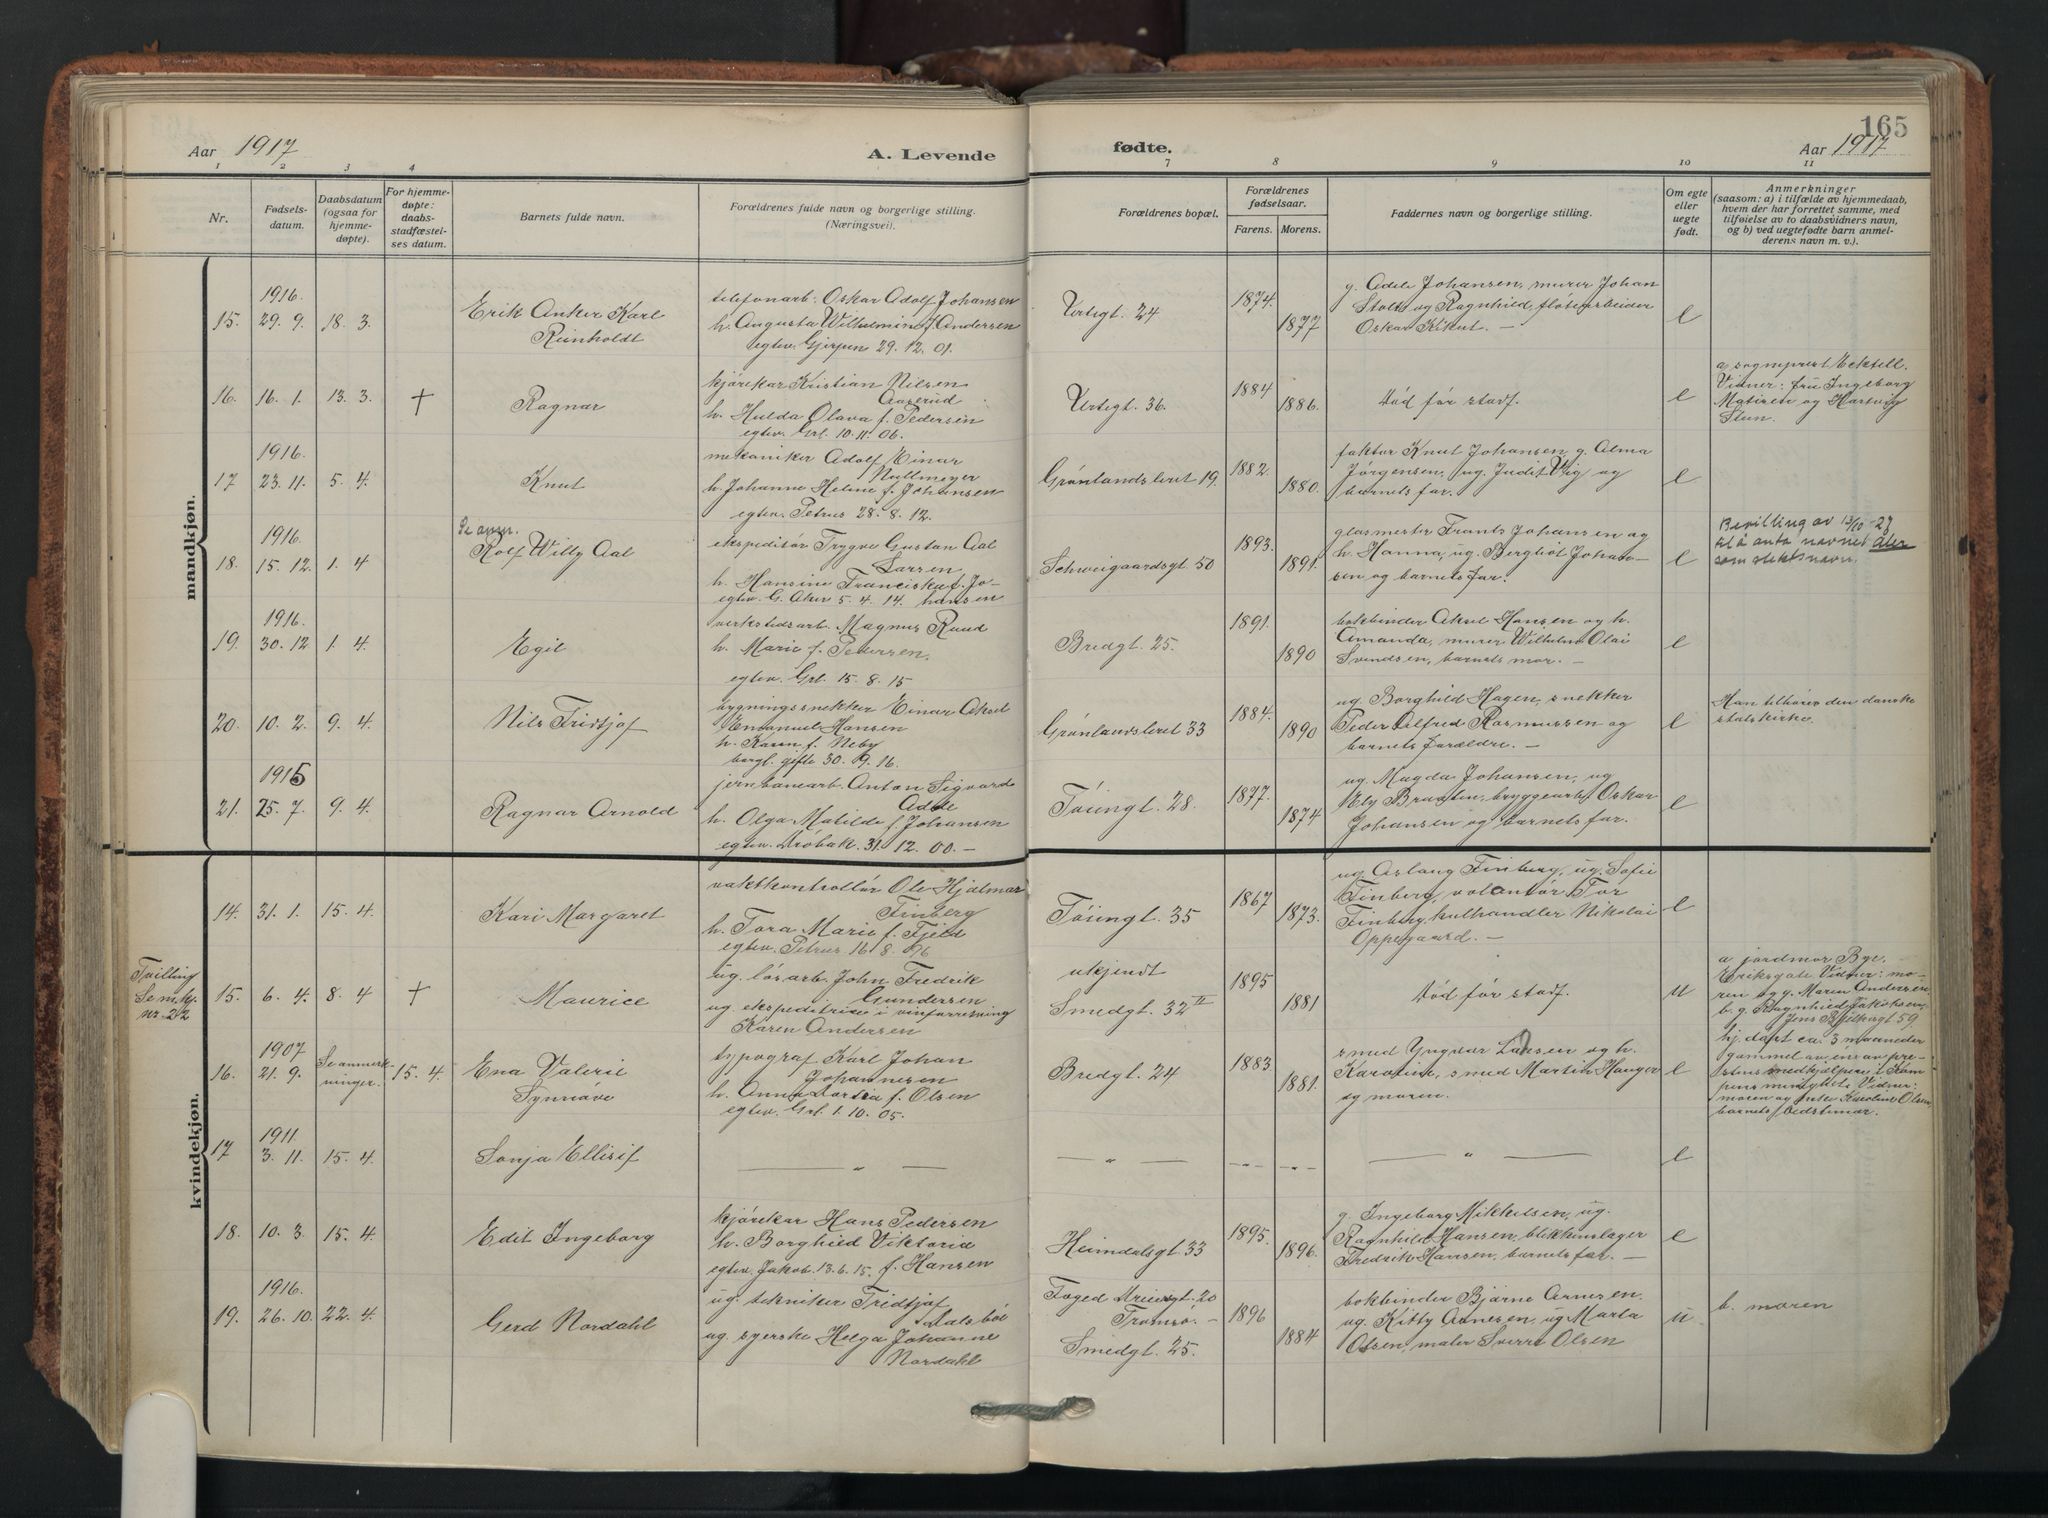 165
Aar 1917
A. Levende
fødte.
Aar 1917
1 2 3 4 7 8 9 10 11
Nr.
Fødsels-
datum.
Daabsdatum
(ogsaa for
hjemme-
døpte).
For hjemme-
døpte:
daabs-
stadfæstel-
ses datum.
Barnets fulde navn.
Forældrenes fulde navn og borgerlige stilling.
(Næringsvei).
Forældrenes bopæl.
Forældrenes
fødselsaar.
Farens. Morens.
Faddernes navn og borgerlige stilling.
Om egte
eller
uegte
født.
Anmerkninger
(saasom: a) i tilfælde av hjemmedaab,
hvem der har forrettet samme, med
tilføielse av to daabsvidners navn,
og b) ved uegtefødte barn anmel-
derens navn m. v.).
mandkjøn.
15. 1916. 29. 9. 18. 3.
Erik Anker Karl
Reinholdt
telefonarb. Oskar Adolf Johansen
h. Augusta Wilhelmine f. Andersen
egtev. Gjerpen 29. 12. 01.
Urtegt. 24
1874. 1877
g. Adele Johansen, murer Johan
Stolt og Ragnhild, fløtearbeider
Oskar Kikut. —
e
16. 16. 1. 13. 3. †
Ragnar
kjørekar Kristian Nilsen
Aaserud
h. Hulda Olava f. Pedersen
egtev. Grl. 10. 11. 06.
Urtegt. 36.
1884 1886.
Død før stadf.
e
a sogneprest
Vidner: fru Ingeborg
og Hartvig
Steen.
17 1916. 23. 11. 5. 4.
Knut
mekaniker Adolf Einar
Nullmeyer
h. Johanne Helene f. Johansen
egtev. Petrus 28. 8. 12.
Grønlandsleret 19.
1882. 1880.
faktor Knut Johansen, g. Alma
Jørgensen, ug. Judit Vig og
barnets far.
e
18. 1916. 15. 12. 1. 4
Se anm.
Rolf Willy Aal
ekspeditør Trygve Gustav Aal
Larsen
h. Hansine Franciska f. Jo-
egtev. G. Aker 5. 4. 14. hansen
Schweigaardsgt. 50
1893. 1891.
glasmester Frants Johansen og
h. Hanna, ug. Bergliot Johan-
sen og barnets far.
e
Bevilling av 13/10-27
til å anta navnet Aler
som slektsnavn.
19. 1916. 30. 12 1. 4.
Egil
verkstedsarb. Magnus Ruud
h. Marie f. Pedersen.
egtev. Grl. 15. 8. 15
Bredgt. 25.
1891. 1890
bokbinder Aksel Hansen og h.
Amanda, murer Wilhelm Olai
Svendsen, barnets mor. —
e
20. 10. 2. 9. 4.
Nils Fridtjof
bygningssnekker Einar Aksel
Emanuel Hansen
h. Karen f. Neby
borgl. gifte 30. 9. 16.
Grønlandsleret 33
1884. 1890
ug. Borghild Hagen, snekker
Peder Alfred Rasmussen og
barnets forældre. —
e
Han tilhører den danske
statskirke.
21. 1915 25. 7. 9. 4.
Ragnar Arnold
jernbanearb. Anton Sigvard
Adde
h. Olga Matilde f. Johansen
egtev. Drøbak. 31. 12. 00. —
Tøiengt. 28.
1877. 1874
ug. Magda Johansen, ug
Ely Braaten, bryggearb. Oskar
Johansen og barnets far.
e
kvindekjøn.
14. 31. 1. 15. 4.
Kari Margaret
vaktkontrollør Ole Hjalmar
Finberg
h. Tora Marie f. Fjeld
egtev. Petrus 16. 8. 96
Tøiengt. 35
1867 1873.
ug. Aslaug Finberg, ug. Sofie
Finberg, volontør Tor
Finberg, kulhandler Nikolai
Oppegaard. —
e
Tvilling
Se m.kj.
nr. 22
15. 6. 4. 8. 4 †
Maurice
ug. løsarb. John Fredrik
Gundersen
ug. ekspeditrice i vinforretning
Karen Andersen
ukjendt
Smedgt. 32 II
1895 1881
Død før stadf.
u
a jordmor Bye.
Eriksgate Vidner: mo-
ren og g. Maren Andersen
b. g. Ragnhild Jakobsen,
Jens Bjelkesgt 59
16. 1907 21. 9. Se anmerk-
ninger. 15. 4.
Ena Valerie
Synnøve
typograf Karl Johan
Johannesen
h. Anna Dortea f. Olsen
egtev. Grl. 1. 10. 05
Bredgt. 24
1883. 1881.
smed Yngvar Larsen og h.
Karoline, smed Martin Hauger
og moren.
e
hj. døpt ca. 3 maaneder
gammel av en av pre-
stens medhjælpere i Kam-
pens menighet. Vidner:
moren og enke Karoline Olsen
barnets bedstemor.
17 1911. 3. 11. 15. 4.
Sonja Ellisif
—— „ ——
— „ —
- „ - - „ -
—— „ ——
e
18. 10. 3. 15. 4.
Edit Ingeborg
kjørekar Hans Pedersen
h. Borghild Viktoria
egtev. Jakob. 13. 6. 15. f. Hansen
Heimdalsgt. 33
1895. 1896.
g. Ingeborg Mikkelsen, ug.
Ragnhild Hansen, blikkenslager
Fredrik Hansen, barnets far. —
e
19. 1916. 26. 10. 22. 4.
Gerd Nordahl
ug. tekniker Fridtjof
Dalsbøe
ug. syerske Helga Johanne
Nordahl
Foged gt. 20
Tromsø. —
Smedgt. 25.
1896 1884
bokbinder Bjarne Arnesen,
ug. Kitty Arnesen, ug Marta
Olsen, maler Sverre Olsen
u
b. moren